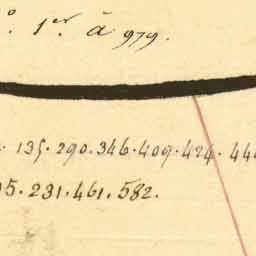 º. 1er. à 979.
135. 290. 346. 409. 424. 44
5. 231. 461. 582.